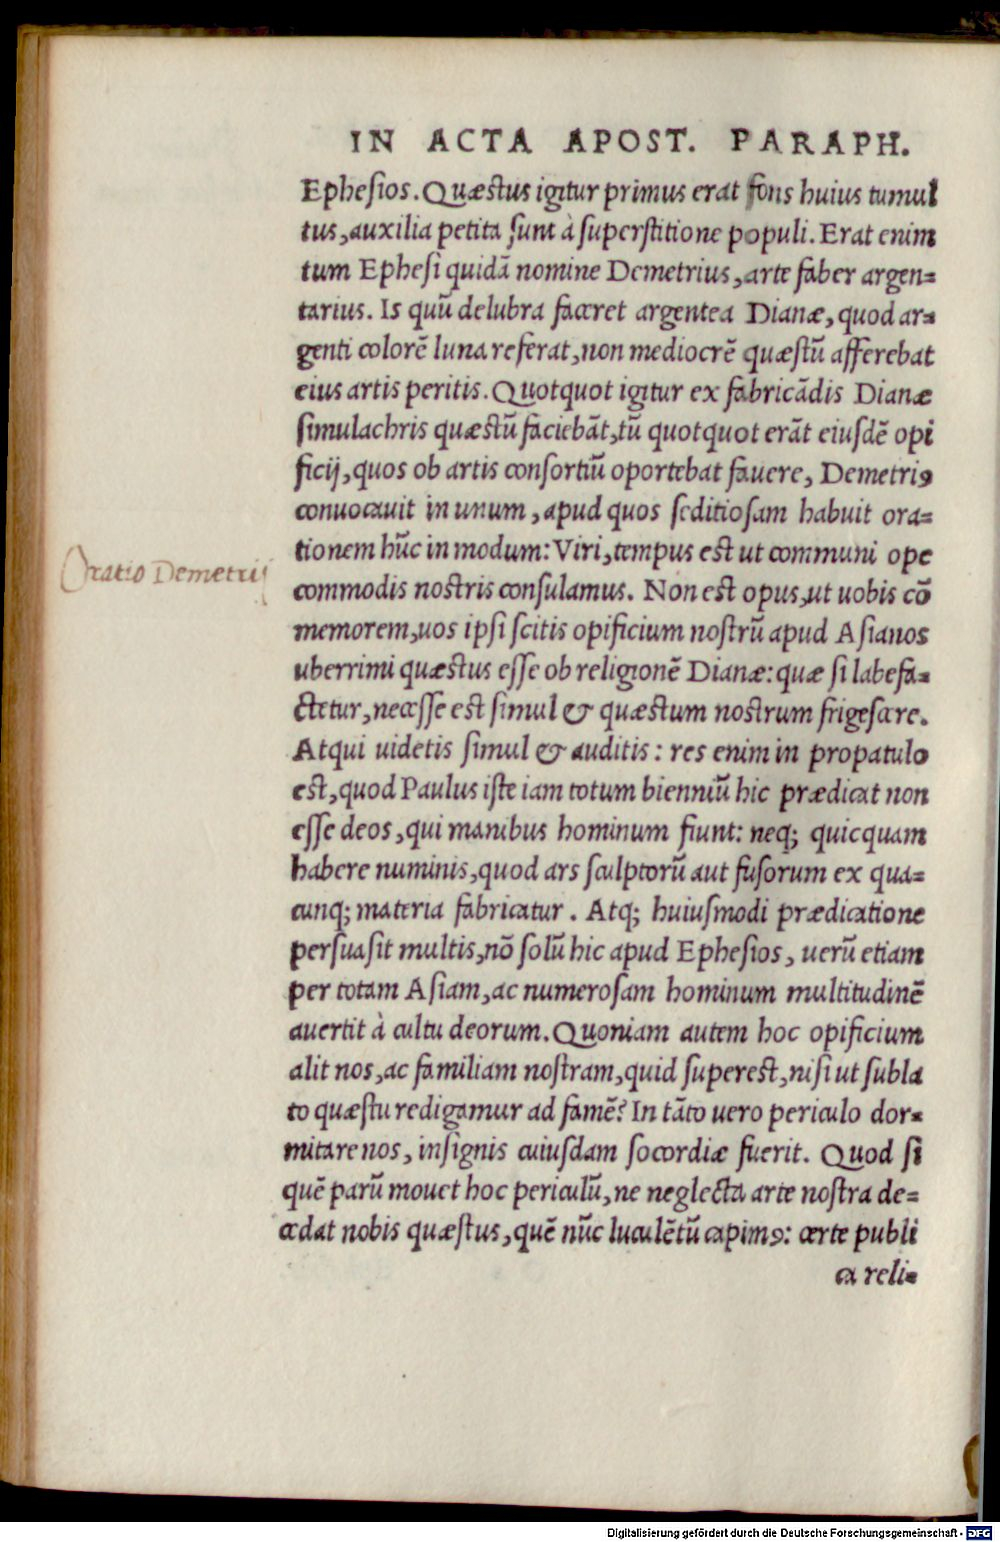 IN ACTA APOST. PARAPH.
Ephesios. Quæstus igitur primus erat fons huius tumul
tus, auxilia petita sunt à superstitione populi. Erat enim
tum Ephesi quidā nomine Demetrius, arte faber argen=
tarius. Is quū delubra faceret argentea Dianæ, quod ar=
genti colorē luna referat, non mediocrē quæstū afferebat
eius artis peritis. Quotquot igitur ex fabricādis Dianæ
simulachris quæstū faciebāt, tū quotquot erāt eiusdē opi
ficij, quos ob artis consortiū oportebat fauere, Demetriꝰ
conuocauit in unum, apud quos seditiosam habuit ora=
tionem hūc in modum: Viri, tempus est ut communi ope
Oratio Demetrij
commodis nostris consulamus. Non est opus, ut uobis cō
memorem, uos ipsi scitis opificium nostrū apud Asianos
uberrimi quæstus esse ob religionē Dianæ: quæ si labefa=
ctetur, necesse est simul & quæstum nostrum frigescere.
Atqui uidetis simul & auditis: res enim in propatulo
est, quod Paulus iste iam totum bienniū hic prædicat non
esse deos, qui manibus hominum fiunt: neq; quicquam
habere numinis, quod ars sculptorū aut fusorum ex qua=
cunq; materia fabricatur. Atq; huiusmodi prædicatione
persuasit multis, nō solū hic apud Ephesios, uerū etiam
per totam Asiam, ac numerosam hominum multitudinē
auertit à cultu deorum. Quoniam autem hoc opificium
alit nos, ac familiam nostram, quid superest, nisi ut subla
to quæstu redigamur ad famē? In tāto uero periculo dor=
mitare nos, insignis cuiusdam socordiæ fuerit. Quod si
quē parū mouet hoc periculū, ne neglecta arte nostra de=
cedat nobis quæstus, quē nūc luculētū capimꝰ: certe publi
ca reli=
Digitalisierung gefördert durch die Deutsche Forschungsgemeinschaft - DFG